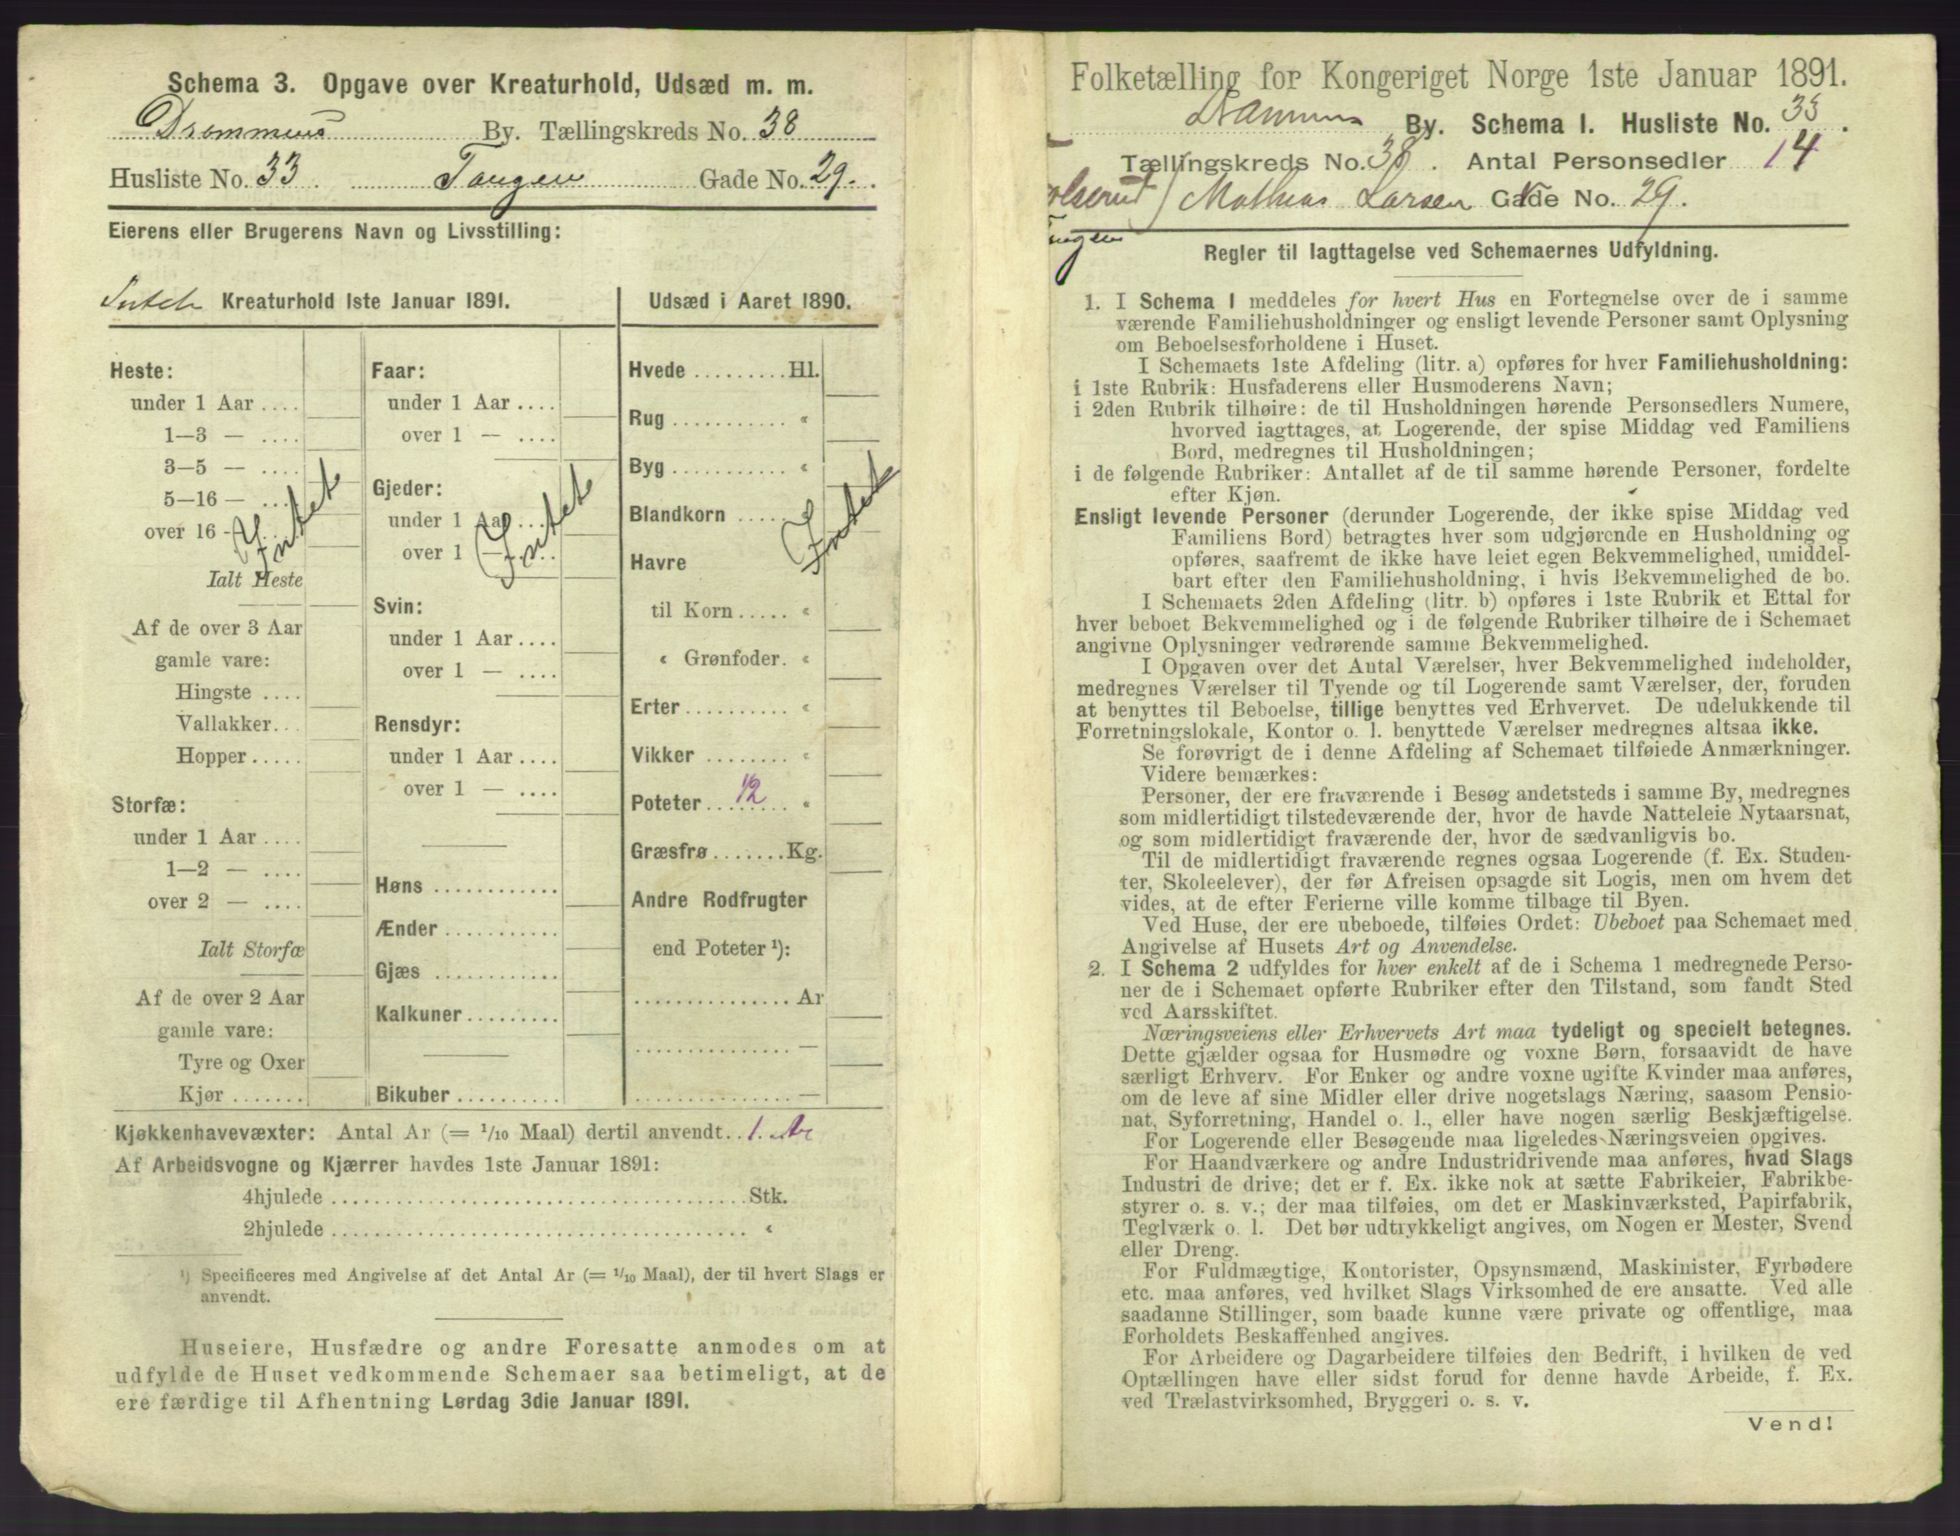 Schema 3. Opgave over Kreaturhold, Udsæd m. m.
Drammens By. Tællingskreds No. 38
Husliste No. 33. Tangen Gade No. 29.
Eierens eller Brugerens Navn og Livsstilling:
Intet Kreaturhold 1ste Januar 1891.
Heste:
under 1 Aar ....
1—3 — ....
3—5 — ....
5—16 — ....
over 16 -
Intet
Ialt Heste
Af de over 3 Aar
gamle vare:
Hingste ....
Vallakker...
Hopper.....
Storfæ:
under 1 Aar ....
1—2 — ....
over 2 — ....
Ialt Storfæ
Af de over 2 Aar
gamle vare:
Tyre og Oxer
Kjør .......
Faar:
under 1 Aar ....
over 1 — ....
Gjeder:
under 1 Aar ....
over 1 — ....
Intet
Svin:
under 1 Aar ....
over 1 — ....
Rensdyr:
under 1 Aar ....
over 1 — ....
Høns ............
Ænder ...........
Gjæs ............
Kalkuner.........
Bikuber ..........
Udsæd i Aaret 1890.
Hvede .........Hl.
Rug ........... «
Byg ........... «
Blandkorn ......
Intet
Havre
til Korn ..... «
« Grønfoder. «
Erter.......... «
Vikker ........ «
Poteter.. 1/2 .... «
Græsfrø.......Kg.
Andre Rodfrugter
end Poteter ¹):
............... Ar
............... —
............... —
Kjøkkenhavevæxter: Antal Ar (= 1/10 Maal) dertil anvendt.. 1. Ar
Af Arbeidsvogne og Kjærrer havdes 1ste Januar 1891:
4hjulede ........................................Stk.
2hjulede ........................................ «
¹) Specificeres med Angivelse af det Antal Ar (= 1/10 Maal), der til hvert Slags er
anvendt.
Huseiere, Husfædre og andre Foresatte anmodes om at
udfylde de Huset vedkommende Schemaer saa betimeligt, at de
ere færdige til Afhentning Lørdag 3die Januar 1891.
Folketælling for Kongeriget Norge 1ste Januar 1891.
Drammens By. Schema I. Husliste No. 33.
Tællingskreds No. 38. Antal Personsedler 14
Mathias Larsen Gade No. 29.
Regler til Iagttagelse ved Schemaernes Udfyldning.
1. I Schema I meddeles for hvert Hus en Fortegnelse over de i samme
værende Familiehusholdninger og ensligt levende Personer samt Oplysning
om Beboelsesforholdene i Huset.
I Schemaets 1ste Afdeling (litr. a) opføres for hver Familiehusholdning:
i 1ste Rubrik: Husfaderens eller Husmoderens Navn;
i 2den Rubrik tilhøire: de til Husholdningen hørende Personsedlers Numere,
hvorved iagttages, at Logerende, der spise Middag ved Familiens
Bord, medregnes til Husholdningen;
i de følgende Rubriker: Antallet af de til samme hørende Personer, fordelte
efter Kjøn.
Ensligt levende Personer (derunder Logerende, der ikke spise Middag ved
Familiens Bord) betragtes hver som udgjørende en Husholdning og
opføres, saafremt de ikke have leiet egen Bekvemmelighed, umiddel-
bart efter den Familiehusholdning, i hvis Bekvemmelighed de bo.
I Schemaets 2den Afdeling (litr. b) opføres i 1ste Rubrik et Ettal for
hver beboet Bekvemmelighed og i de følgende Rubriker tilhøire de i Schemaet
angivne Oplysninger vedrørende samme Bekvemmelighed.
I Opgaven over det Antal Værelser, hver Bekvemmelighed indeholder,
medregnes Værelser til Tyende og til Logerende samt Værelser, der, foruden
at benyttes til Beboelse, tillige benyttes ved Erhvervet. De udelukkende til
Forretningslokale, Kontor o. l. benyttede Værelser medregnes altsaa ikke.
Se forøvrigt de i denne Afdeling af Schemaet tilføiede Anmærkninger.
Videre bemærkes:
Personer, der ere fraværende i Besøg andetsteds i samme By, medregnes
som midlertidigt tilstedeværende der, hvor de havde Natteleie Nytaarsnat,
og som midlertidigt fraværende der, hvor de sædvanligvis bo.
Til de midlertidigt fraværende regnes ogsaa Logerende (f. Ex. Studen-
ter, Skoleelever), der før Afreisen opsagde sit Logis, men om hvem det
vides, at de efter Ferierne ville komme tilbage til Byen.
Ved Huse, der ere ubeboede, tilføies Ordet: Ubeboet paa Schemaet med
Angivelse af Husets Art og Anvendelse.
2. I Schema 2 udfyldes for hver enkelt af de i Schema 1 medregnede Perso-
ner de i Schemaet opførte Rubriker efter den Tilstand, som fandt Sted
ved Aarsskiftet.
Næringsveiens eller Erhvervets Art maa tydeligt og specielt betegnes.
Dette gjælder ogsaa for Husmødre og voxne Børn, forsaavidt de have
særligt Erhverv. For Enker og andre voxne ugifte Kvinder maa anføres,
om de leve af sine Midler eller drive nogetslags Næring, saasom Pensio-
nat, Syforretning, Handel o. l., eller have nogen særlig Beskjæftigelse.
For Logerende eller Besøgende maa ligeledes Næringsveien opgives.
For Haandværkere og andre Industridrivende maa anføres, hvad Slags
Industri de drive; det er f. Ex. ikke nok at sætte Fabrikeier, Fabrikbe-
styrer o. s. v.; der maa tilføies, om det er Maskinværksted, Papirfabrik,
Teglværk o. l. Det bør udtrykkeligt angives, om Nogen er Mester, Svend
eller Dreng.
For Fuldmægtige, Kontorister, Opsynsmænd, Maskinister, Fyrbødere
etc. maa anføres, ved hvilket Slags Virksomhed de ere ansatte. Ved alle
saadanne Stillinger, som baade kunne være private og offentlige, maa
Forholdets Beskaffenhed angives.
For Arbeidere og Dagarbeidere tilføies den Bedrift, i hvilken de ved
Optællingen have eller sidst forud for denne havde Arbeide, f. Ex.
ved Trælastvirksomhed, Bryggeri o. s. v.
Vend!